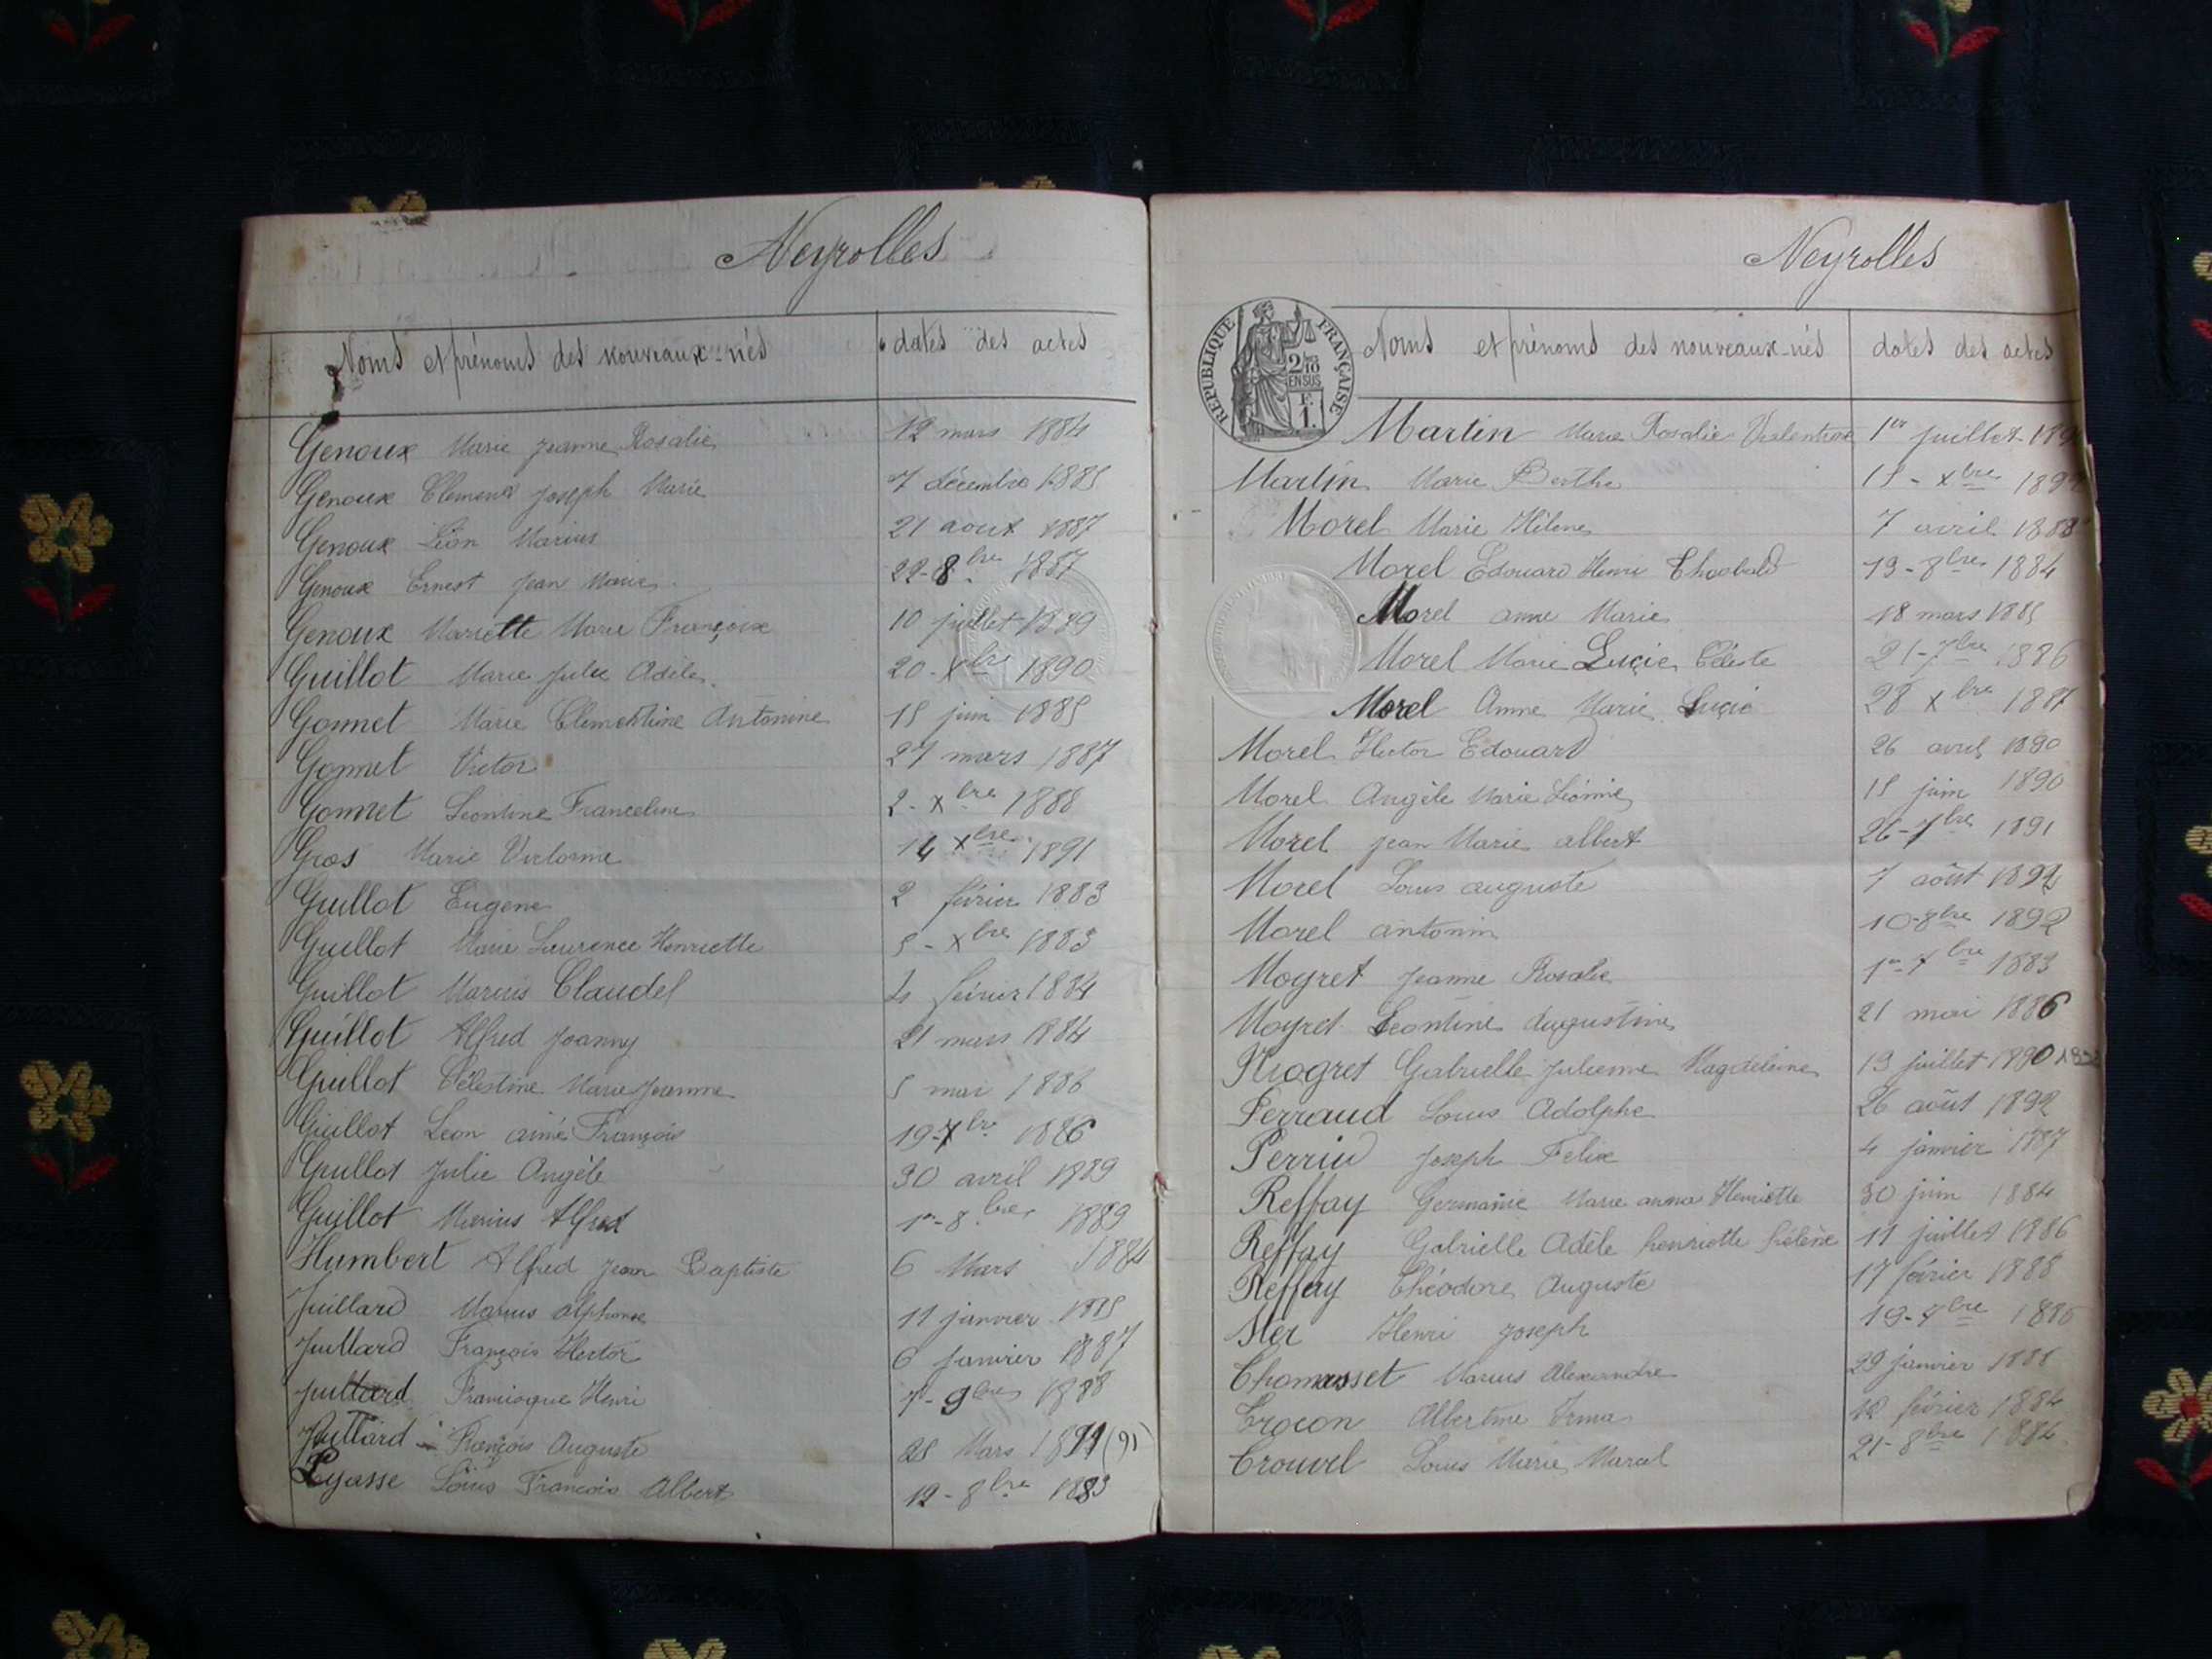 Neyrolles
Noms et prénoms des nouveaux-nés dates des actes
Genoux Marie Jeanne Rosalie 12 mars 1884
Genoux Clément Joseph Marie 7 décembre 1885
Genoux Léon Marius 21 aout 1887
Genoux Ernest Jean Marie 22-8bre 1887
Genoux Mariette Marie Françoise 10 juillet 1889
Guillot Marie Julie Adèle 20-Xbre 1890
Gonnet Marie Clémentine Antonine 15 juin 1885
Gonnet Victor 27 mars 1887
Gonnet Léontine Franceline 2-Xbre 1888
Gros Marie Victorine 14 Xbre 1891
Guillot Eugene 2 février 1883
Guillot Marie Laurence Henriette 5-Xbre 1883
Guillot Marius Claudel 4 février 1884
Guillot Alfred Joanny 21 mars 1884
Guillot Célestine Marie Jeanne 5 mai 1886
Guillot Leon aimé François 19-7bre 1886
Guillot Julie Angèle 30 avril 1889
Guillot Marius Alfred 1er-8bre 1889
Humbert Alfred Jean Baptiste 6 Mars 1884
Juillard Marius alphonse 11 janvier 1885
Juillard François Hector 6 Janvier 1887
Juillard Francisque Henri 1er-9bre 1888
Juillard François Auguste 28 Mars 1891 (91)
Lyasse Louis François Albert 12-8bre 1883
Neyrolles
REPUBLIQUE FRANÇAISE
2/10 EN SUS
F. 1.
Noms et prénoms des nouveaux-nés dates des actes
Martin Marie Rosalie Valentine 1er juillet 189
Martin Marie Berthe 15-Xbre 189
Morel Marie Hélène 7 avril 1883
Morel Edouard Henri Théobald 19-8bre 1884
Morel anne Marie 18 mars 1885
Morel Marie Luçie Céleste 21-7bre 1886
Morel Anne Marie Luçie 28 Xbre 1887
Morel Hector Edouard 26 avril 1890
Morel Angèle Marie Léonie 15 juin 1890
Morel Jean Marie albert 26-7bre 1891
Morel Louis auguste 7 août 1892
Morel antonin 10-8bre 1892
Moyret Jeanne Rosalie 1er-7bre 1883
Moyret Leontine Augustine 21 mai 1886
Niogret Gabrielle Julienne Magdeleine 13 juillet 1890
Perraud Louis Adolphe 26 août 1892
Perrin Joseph Felix 4 janvier 1887
Reffay Germanie Marie anna Henriette 30 juin 1884
Reffay Gabrielle Adèle henriette hélène 11 juillet 1886
Reffay Théodore Auguste 17 février 1888
Henri Joseph 19-7bre 1886
Thomasset Marius Alexandre 29 janvier 1888
Trocon Albertine Irma 12 février 1884
Trouvel Louis Marie Marcel 21-8bre 1884